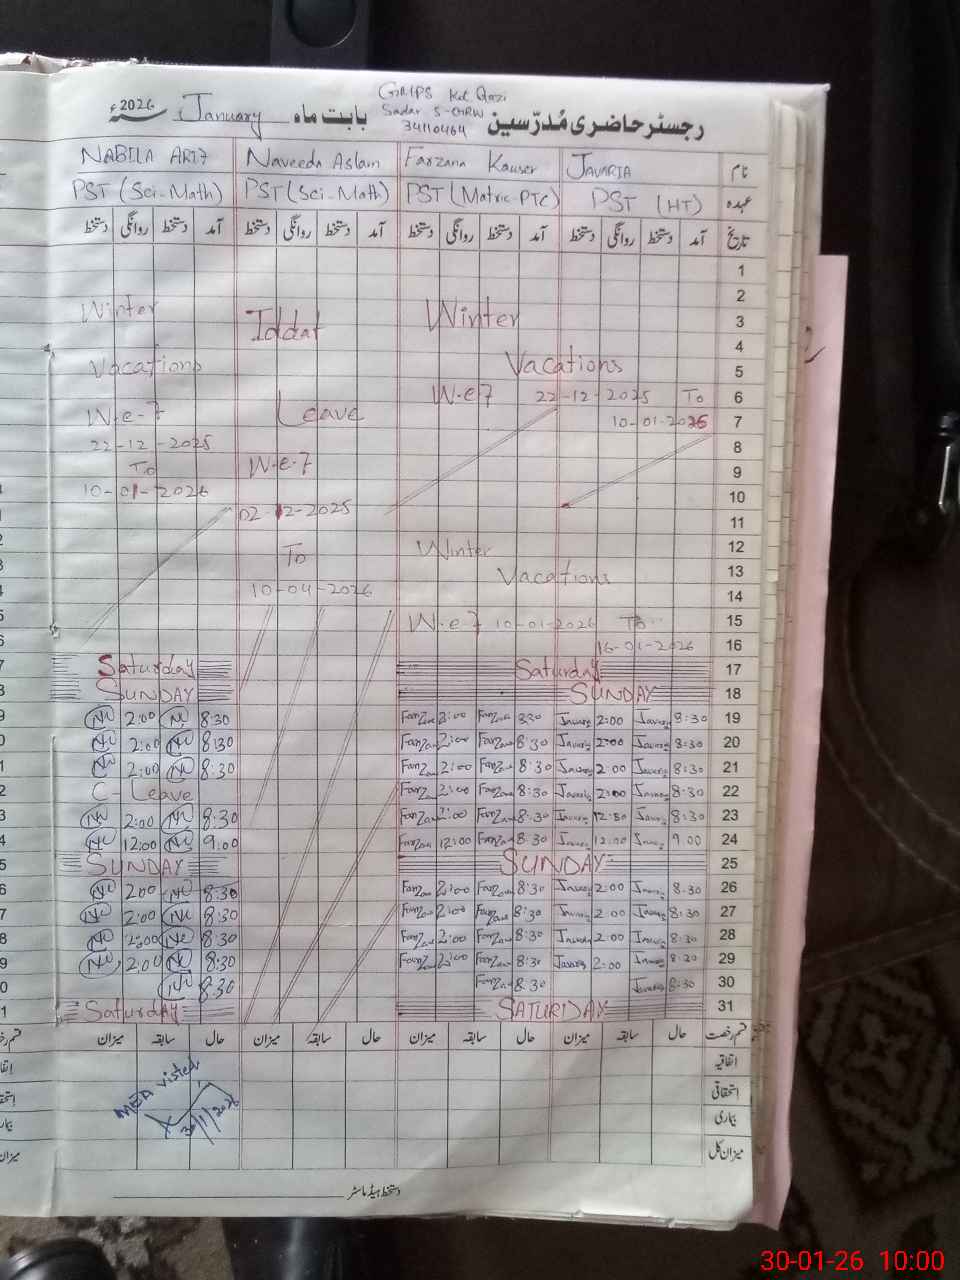 GMPS Kot Qazi
Sadar S-GRW
34110464
رجسٹر حاضری مُدرّسین بابت ماہ January 2026ء
نام JAVARIA Farzana Kauser Naveeda Aslam NABILA
عہدہ PST (HT) PST (Matric-PTC) PST (Sci-Math) PST (Sci-Math)
تاریخ آمد دستخط روانگی دستخط آمد دستخط روانگی دستخط آمد دستخط روانگی دستخط آمد دستخط روانگی دستخط
1
2
Winter Iddat Winter 3
4
Vacations Vacations 5
W.e.7 22-12-2025 To 6
W.e-7 Leave 10-01-2026 7
22-12-2025 8
To W.e.7 9
10-01-2026 10
02-12-2025 11
To Winter 12
Vacations 13
10-04-2026 14
W.e.7 10-01-2026 To 15
16-01-2026 16
Saturday Saturday 17
SUNDAY SUNDAY 18
2:00 8:30 Farzana 2:00 Farzana 8:30 Javaria 2:00 Javaria 8:30 19
2:00 8:30 Farzana 2:00 Farzana 8:30 Javaria 2:00 Javaria 8:30 20
2:00 8:30 Farzana 2:00 Farzana 8:30 Javaria 2:00 Javaria 8:30 21
C-Leave Farzana 2:00 Farzana 8:30 Javaria 2:00 Javaria 8:30 22
2:00 8:30 Farzana 2:00 Farzana 8:30 Javaria 12:30 Javaria 8:30 23
12:00 9:00 Farzana 12:00 Farzana 8:30 Javaria 12:00 Javaria 9.00 24
SUNDAY SUNDAY 25
2:00 8:30 Farzana 2:00 Farzana 8:30 Javaria 2:00 Javaria 8:30 26
2:00 8:30 Farzana 2:00 Farzana 8:30 Javaria 2:00 Javaria 8:30 27
2:00 8:30 Farzana 2:00 Farzana 8:30 Javaria 2:00 Javaria 8:30 28
2:00 8:30 Farzana 2:00 Farzana 8:30 Javaria 2:00 Javaria 8:20 29
8:30 Farzana 8.30 Javaria 8:30 30
Saturday SATURDAY 31
قسم رخصت حال سابقہ میزان حال سابقہ میزان حال سابقہ میزان حال سابقہ میزان
اتفاقیہ
استحقاقی
بیماری
میزان کل
MEA visted
30/1/2026
دستخط ہیڈ ماسٹر
30-01-26 10:00